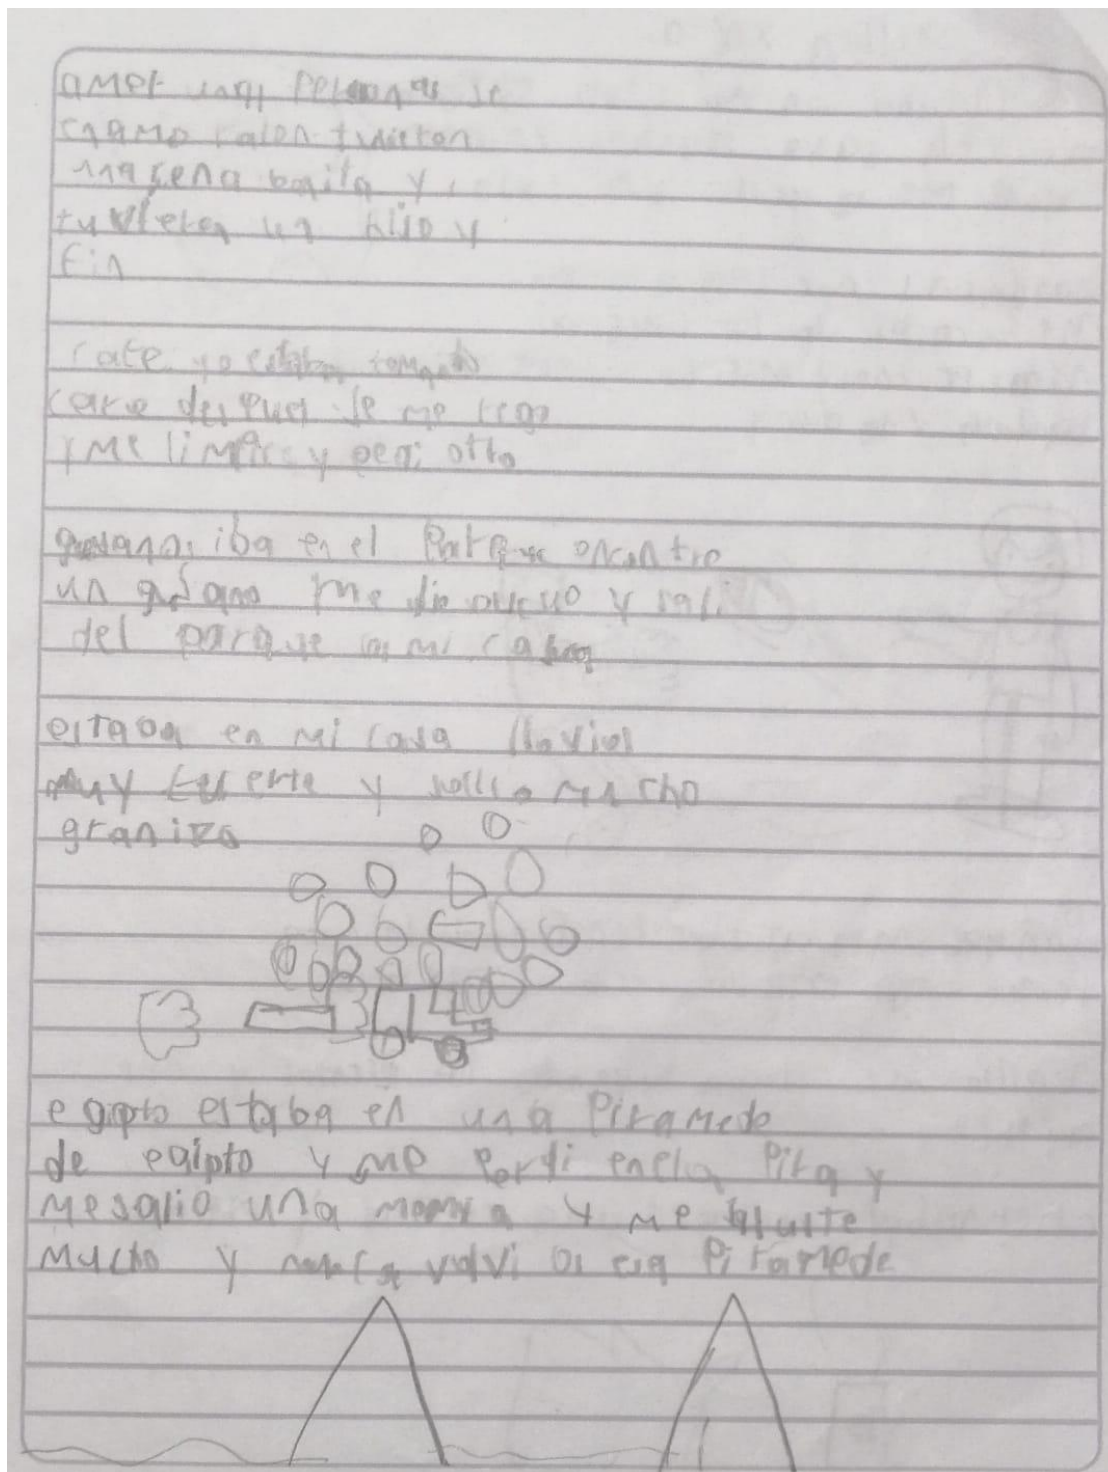 amor unas personas se
tuvieron
una sena y
tuvieron un hijo y
fin
cafe yo estaba
cafe despues se me rego
y me limpie y pedi otro
gusano iba en el parque
un gusano me dio y sali
del parque a mi casa
estaba en mi casa llovia
muy fuerte y mucho
granizo
egipto estaba en una Piramede
de egipto y me perdi en Pira y
mesalio una momia y me
mucho y nunca volvi a esa Piramede